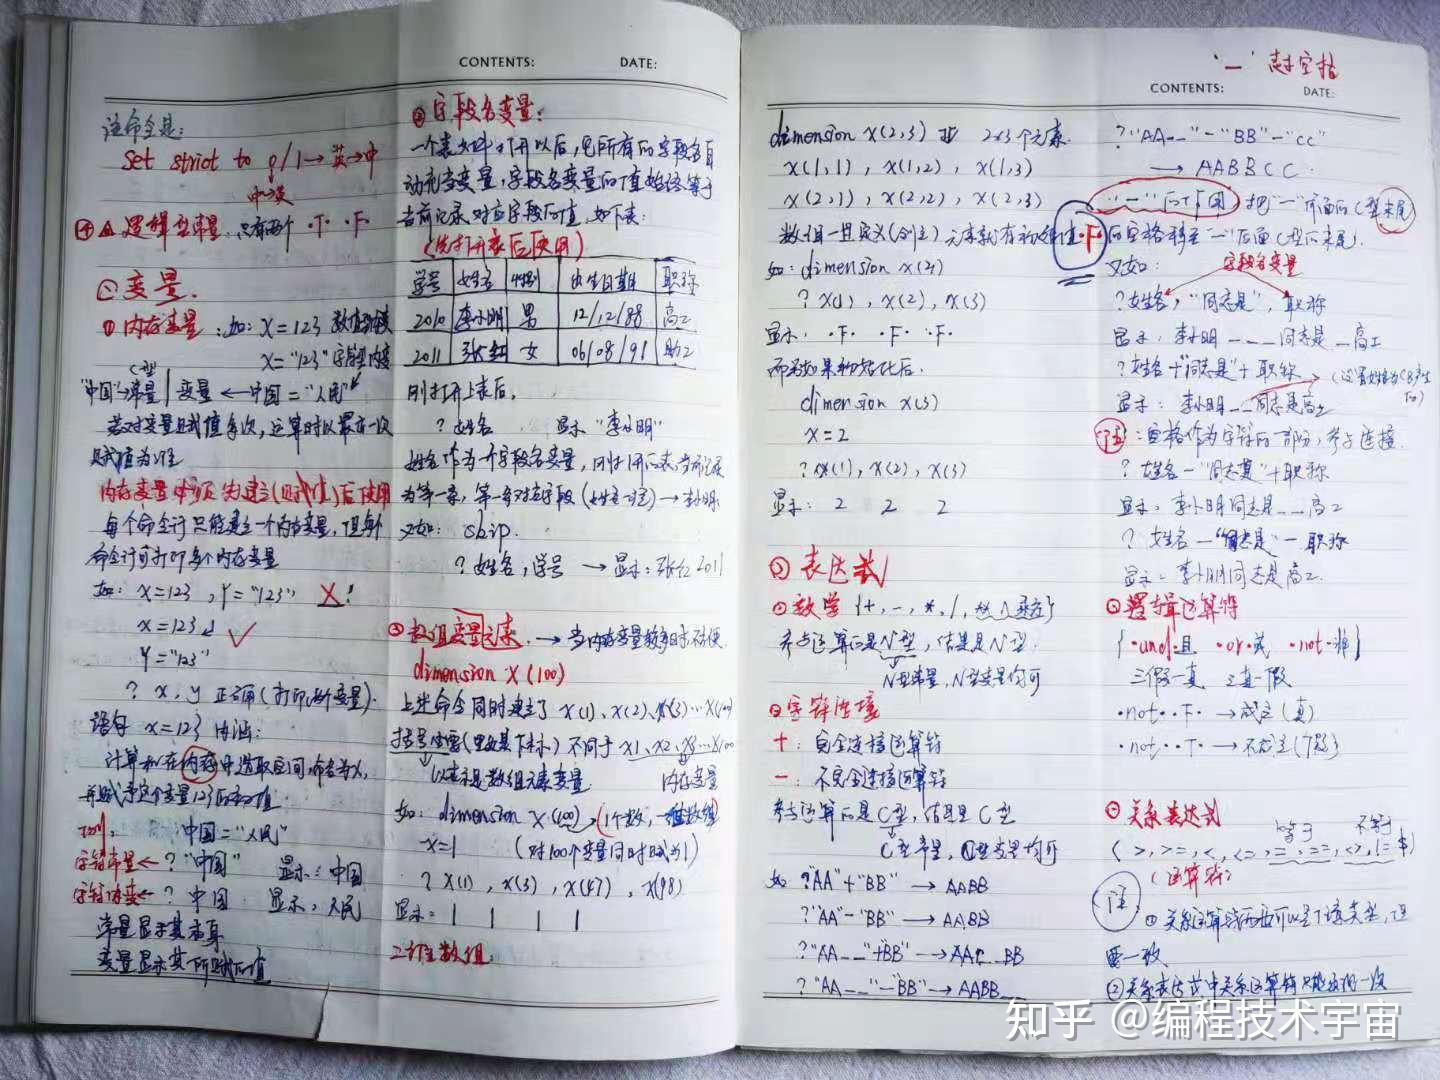 CONTENTS: DATE:
该命令是:
Set strict to 0/1→英→中
④ 逻辑型常量:只有两个 ·T· ·F·
(二)变量.
① 内存变量:如:X=123 数值型
X="123"字符型
C型
"中国"→常量|变量←中国="人民"
若对变量赋值多次,运算时以最右一次
赋值为准
内存变量必须先建立(赋值)后使用
每个命令行只能建立一个内存变量,但每个
命令行可打印多个内存变量
如:x=123,Y="123" X!
x=123
Y="123"
? x,y 正确(打印两个变量).
语句 x=123 内涵:
计算机在内存中选取空间,命名为X,
并赋予这个变量123的值
中国="人民"
字符常量←?"中国" 显示:中国
?中国 显示:人民
常量显示其本身
变量显示其所赋的值
② 字段名变量:
一个表文件打开以后,它所有的字段名自
动充当变量,字段名变量的值始终等于
当前记录对应字段的值,如下表:
(先打开表后使用)
学号 姓名 性别 出生日期 职称
2010 李小明 男 12/12/88 高工
2011 张红 女 06/08/91 助工
刚打开上表后,
?姓名 显示"李小明"
姓名作为一个字段名变量,刚打开的表,当前记录
为第一条,第一条对应字段(姓名)→李小明
又如:skip.
?姓名,学号 →显示:张红 2011
③ 数组变量元素.→当内存变量数多时不便
dimension X(100)
上述命令同时建立了 X(1)、X(2)、X(3)…X(100)
括号(里面是下标)不同于 X1、X2、X3…X100
以表示是数组元素变量 内存变量
如:dimension X(100)→(1个数,一维数组)
x=1 (对100个变量同时赋为1)
? X(1),X(3),X(47),X(98)
显示:1 1 1 1
二维数组:
"_"表示空格
CONTENTS: DATE:
dimension X(2,3) 2×3个元素.
X(1,1),X(1,2),X(1,3)
X(2,1),X(2,2),X(2,3)
数组一旦定义(创立)元素就有初始值·F·
如:dimension X(3)
? X(1),X(2),X(3)
显示:·F· ·F· ·F·
而如果初始化后.
dimension X(3)
X=2
? X(1),X(2),X(3)
显示:2 2 2
(三)表达式
① 数学{+,-,*,/,**,∧乘方}
参与运算的是N型,结果是N型.
N型常量,N型变量均可
② 字符连接
+:完全连接运算符
-:不完全连接运算符
参与运算的是C型,结果是C型
C型常量,C型变量均可
如 ?"AA"+"BB" → AABB
?"AA"-"BB" → AABB
?"AA__"+"BB" → AA__BB
?"AA__"-"BB" → AABB__
?"AA__"-"BB"-"CC"
→ AABBCC
"-"的作用 把"-"前面的C型末尾
的空格移至"-"后面C型的末尾.
又如: 字段名变量
?姓名,"同志是",职称
显示:李小明___同志是_高工
?姓名+"同志是"+职称
显示:李小明__同志是高工
注:空格作为字符的一部分,参与连接.
?姓名-"同志是"+职称
显示:李小明同志是__高工
?姓名-"同志是"-职称
显示:李小明同志是高工
③ 逻辑运算符
{·and·且 ·or·或 ·not·非}
·not··F· →成立(真)
·not··T· →不成立(假)
④ 关系表达式
等于 不等于
(>,>=,<,<=,=,==,<>,!=,$)
(运算符)
注
① 关系运算符两边可以是下列类型,但
要一致
② 关系表达式中关系运算符只能出现一次
知乎 @编程技术宇宙